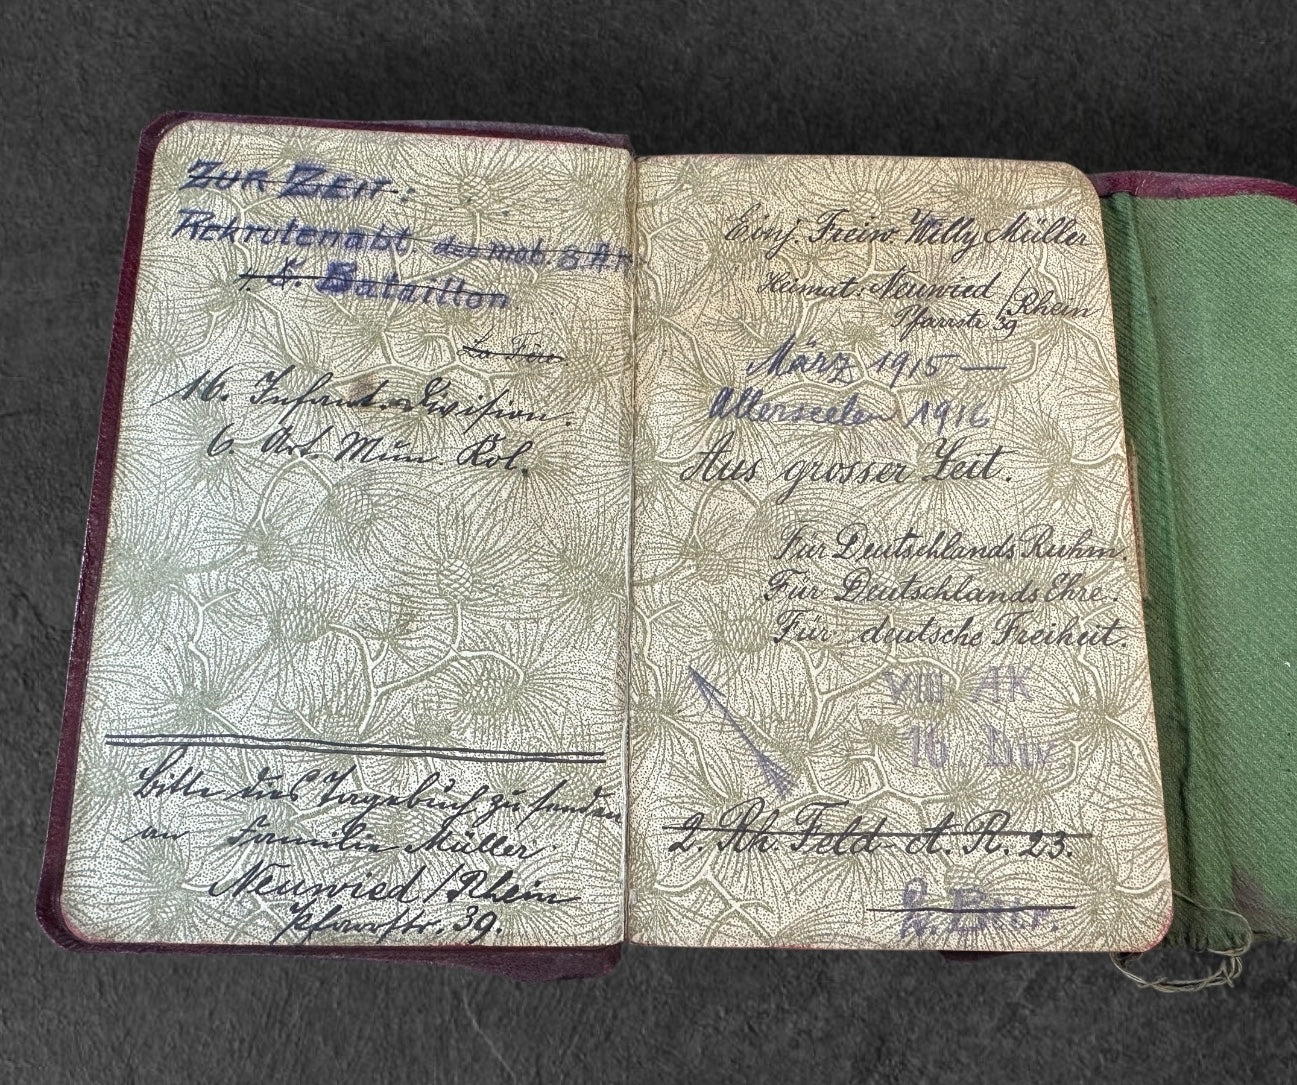 ZUR ZEIT:
Rekrutenabt. des mob. 8. A.K.
1. E. Bataillon
La Fère
16. Infant. Division.
6. Art. Mun. Kol.
Bitte dies Tagebuch zu senden
an Familie Müller
Neuwied / Rhein
Pfarrstr. 39.
Einj. Freiw. Willy Müller
Heimat: Neuwied / Rhein
Pfarrstr. 39
März 1915 —
Allerseelen 1916
Aus grosser Zeit.
Für Deutschlands Ruhm.
Für Deutschlands Ehre.
Für deutsche Freiheit.
VIII AK
16 Div.
2. Rh. Feld-A. R. 23.